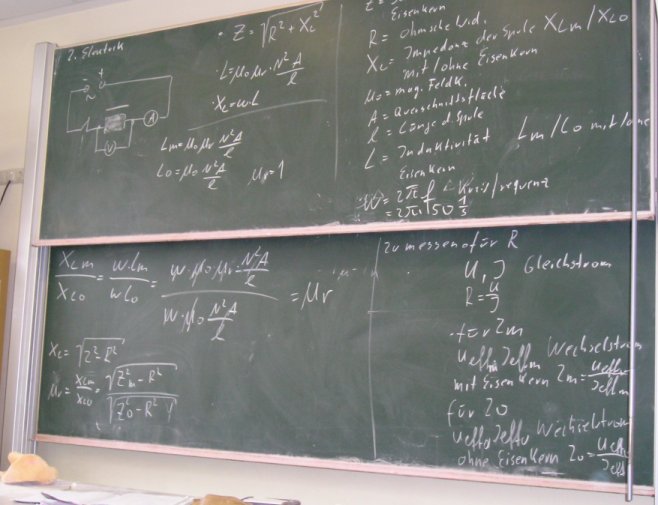 2.
Z = √R² + X_L²
L = μ₀ μr · N² A / l
X_L = ωL
Lm = μ₀ μr N² A / l
L₀ = μ₀ N² A / l    μr = 1
A
V
~
Eisenkern
R = ohmsche Wid.
X_L = Impedanz der Spule X_Lm / X_L0
mit/ohne Eisenkern
μ₀ = mag. Feldk.
A = Querschnittsfläche
l = Länge d. Spule
L = Induktivität Lm/L0 mit/ohne
Eisenkern
ω = 2πf Kreisfrequenz
= 2π · 50 1/s
X_Lm / X_L0 = ω·Lm / ωL₀ = ω·μ₀ μr · N² A / l / ω·μ₀ N² A / l = μr
X_L = √Z² - R²
μr = X_Lm / X_L0 = √Z²m - R² / √Z²₀ - R²
zu messen für R
U, I Gleichstrom
R = U / I
für Zm
Ueffm Ieffm Wechselstrom
mit Eisenkern Zm = Ueffm / Ieffm
für Z0
Ueff0 Ieff0 Wechselstrom
ohne Eisenkern Z0 = Ueff0 / Ieff0